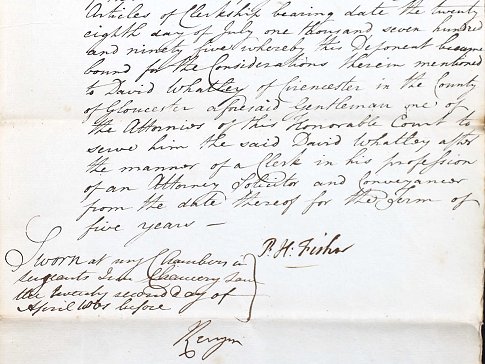 Articles of Clerkship bearing date the twenty
eighth day of July one thousand seven hundred
and ninety five whereby this Deponent became
bound for the Considerations therein mentioned
to David Whatley of Cirencester in the County
of Gloucester aforesaid Gentleman one of
the Attornies of this Honorable Court to
serve him the said David Whatley after
the manner of a Clerk in his profession
of an Attorney Solicitor and Conveyancer
from the date thereof for the Term of
five years —
P. H: Fisher
Sworn at my Chambers in
Serjeants Inn Chancery Lane
the twenty second day of
April before
Kenyon